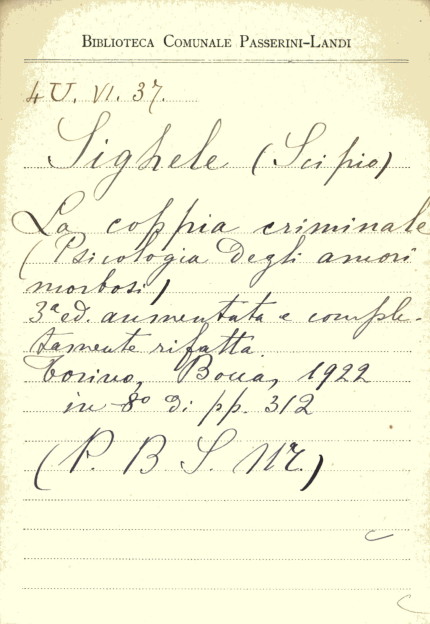 BIBLIOTECA COMUNALE PASSERINI-LANDI
4 U. VI. 37.
Sighele (Scipio)
La coppia criminale
(Psicologia degli amori
morbosi)
3ª ed. aumentata e comple-
tamente rifatta.
Torino, Bocca, 1922
in 8º di pp. 312
(P. B S.